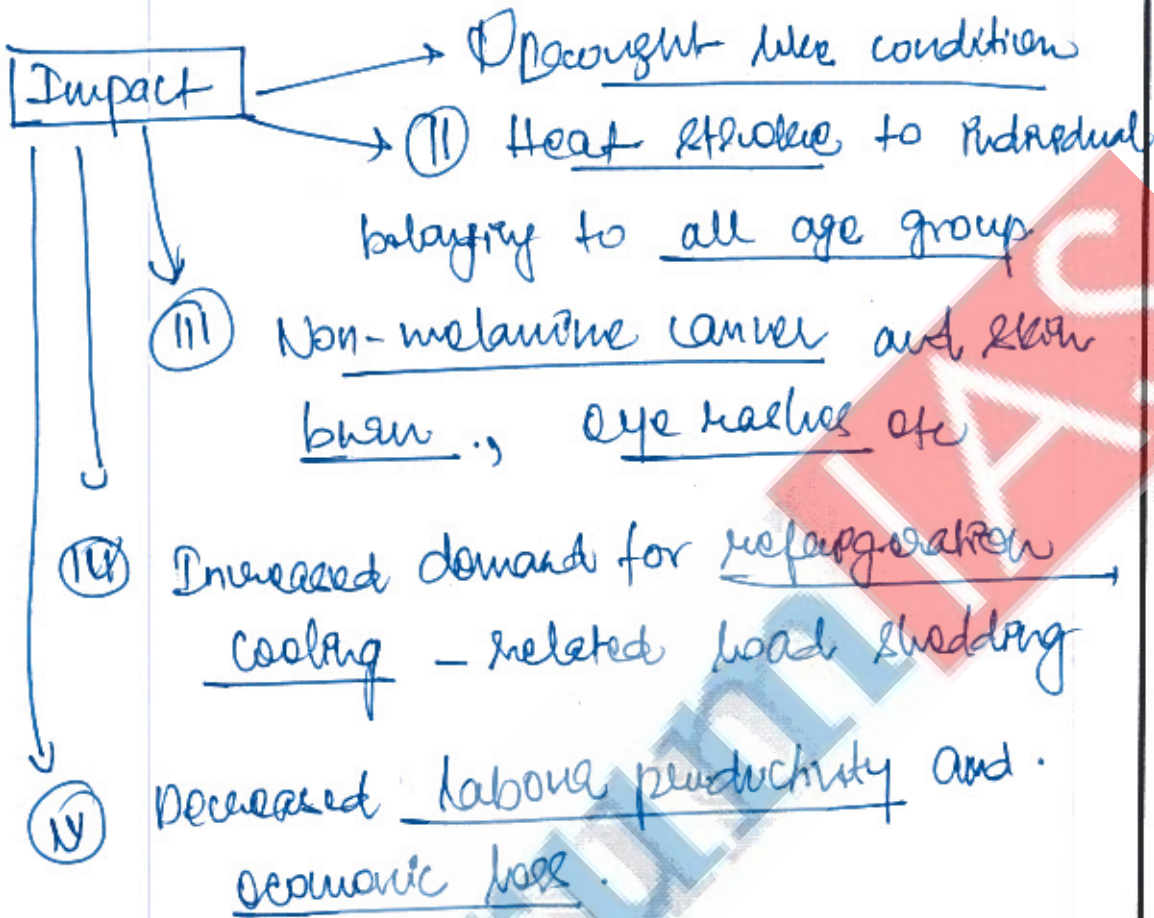 Impact
① Drought like condition
(II) Heat stroke to individual
belonging to all age group
(III) Non-melanine cancer and skin
burn., eye rashes etc
(IV) Increased demand for refrigeration
cooling – related load shedding
(IV) Decreased labour productivity and.
economic loss.
IAS
um